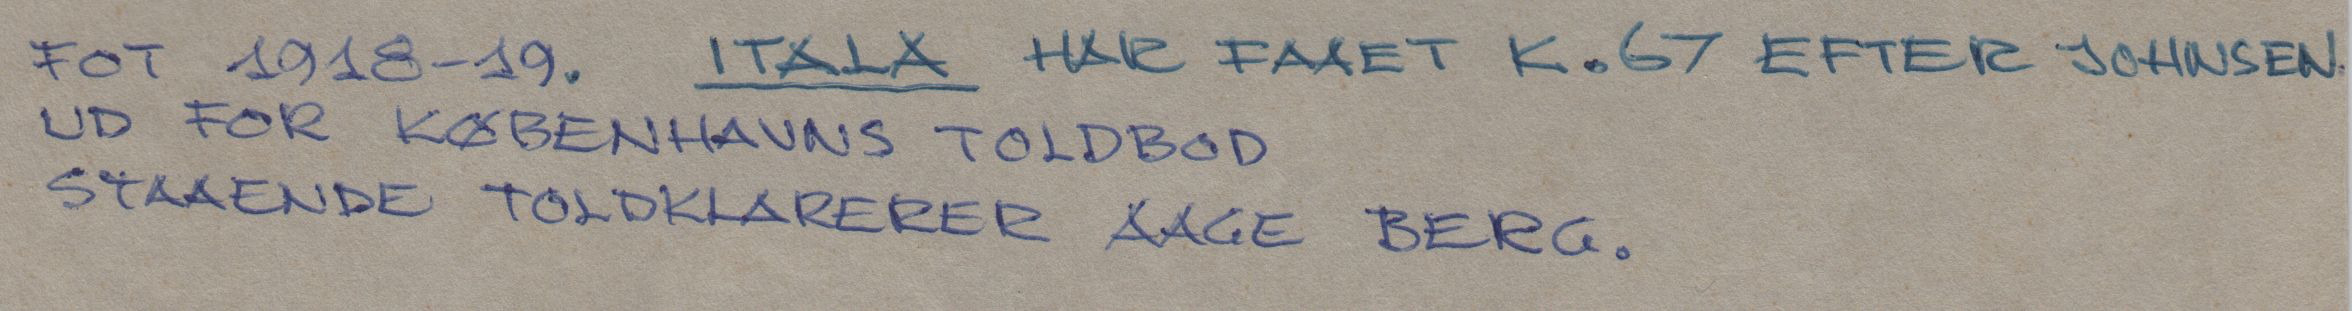 FOT 1918-19. ITALA HAR FAAET K.67 EFTER JOHNSEN.
UD FOR KØBENHAVNS TOLDBOD
STAAENDE TOLDKLARERER AAGE BERG.